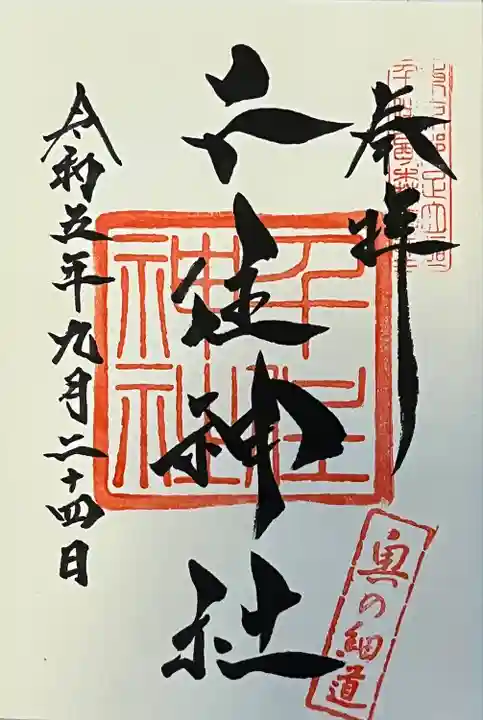 奉拝
千住神社
千住神社
奥の細道
令和五年九月二十四日